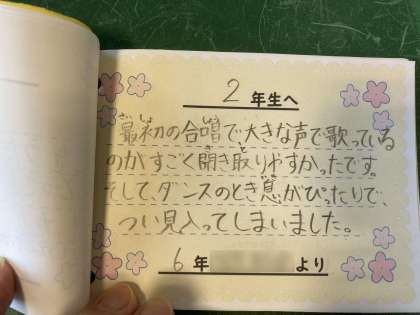 2年生へ
最初の合唱で大きな声で歌っている
のがすごく聞き取りやすかったです。
そして、ダンスのとき息がぴったりで、
つい見入ってしまいました。
6年 より